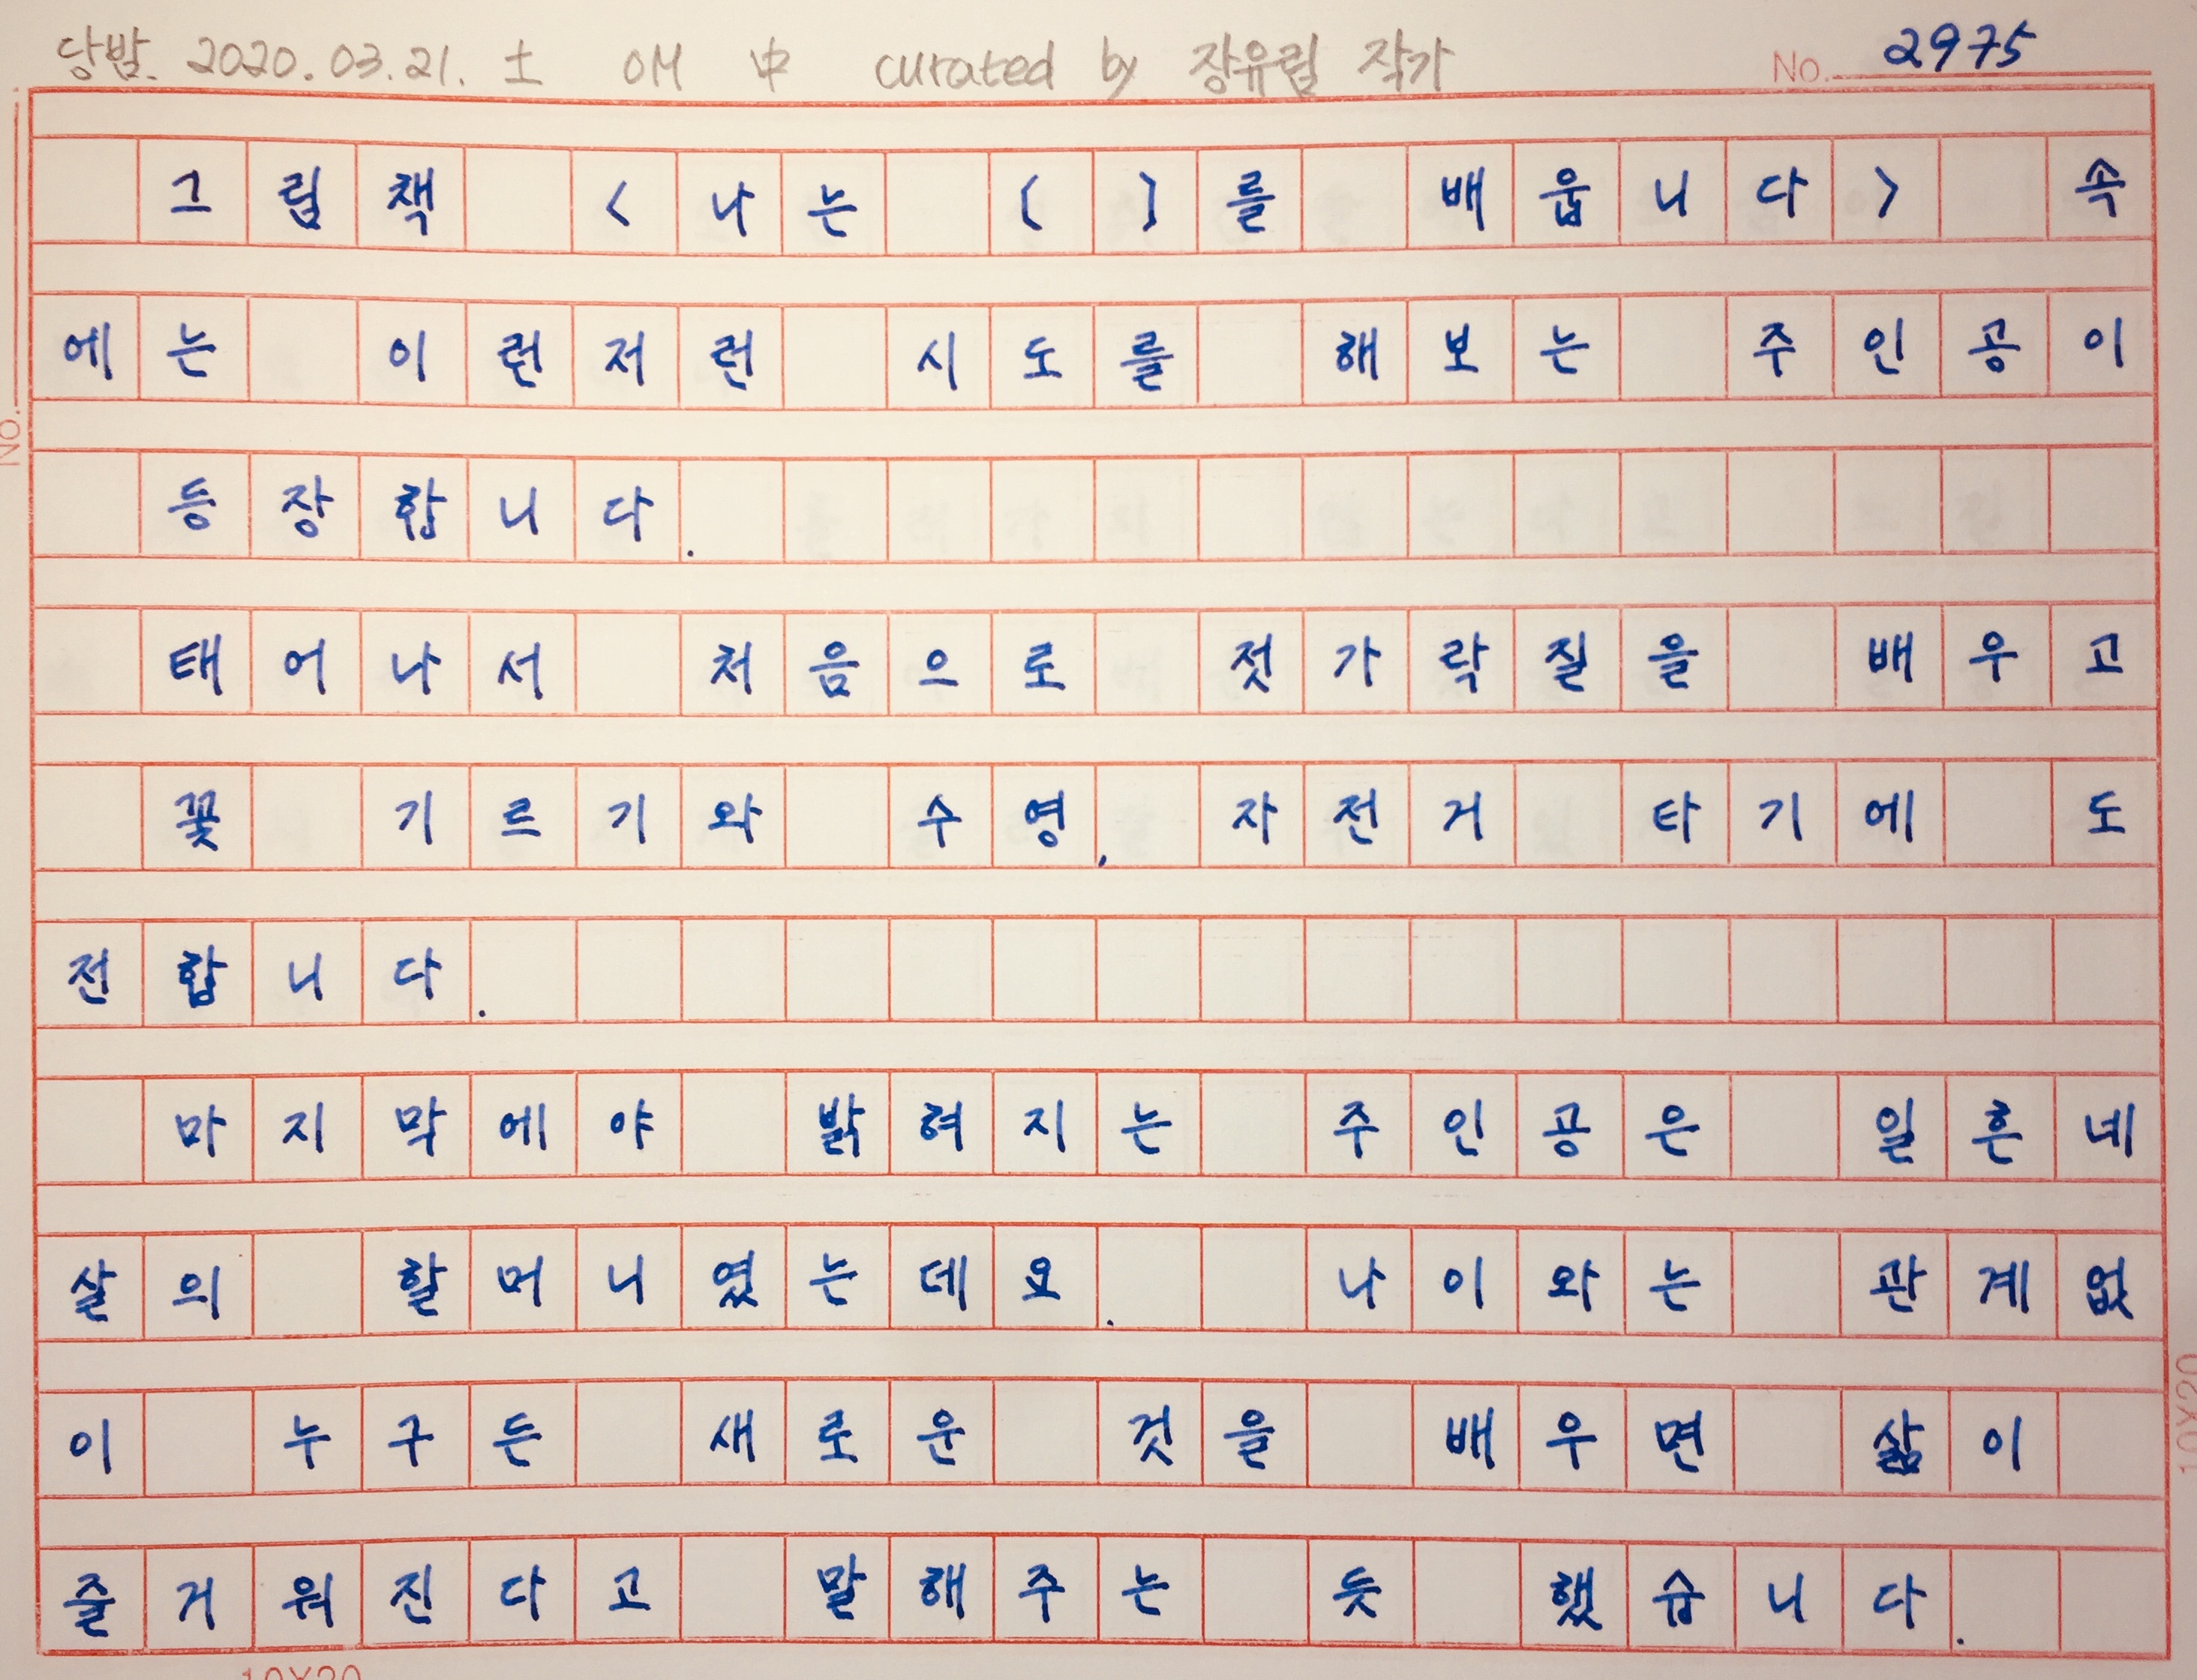 당밤. 2020.03.21. 土 OM 中 curated by 장유림 작가 No. 2975
그림책 <나는 ( )를 배웁니다> 속
에는 이런저런 시도를 해보는 주인공이
등장합니다.
태어나서 처음으로 젓가락질을 배우고
꽃 기르기와 수영, 자전거 타기에 도
전합니다.
마지막에야 밝혀지는 주인공은 일흔네
살의 할머니였는데요. 나이와는 관계없
이 누구든 새로운 것을 배우면 삶이
즐거워진다고 말해주는 듯 했습니다.
No.
10X20
10X20